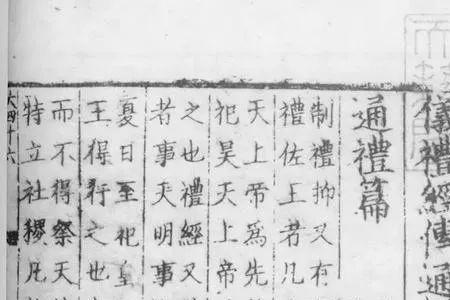 儀禮經傳通
通禮篇
制禮抑又有
禮佐王者凡
天上帝爲先
祀昊天上帝
之也禮經又
者事天明事
夏日至祀皇
王得行之也
而不得祭天
特立社稷凡
大四十六